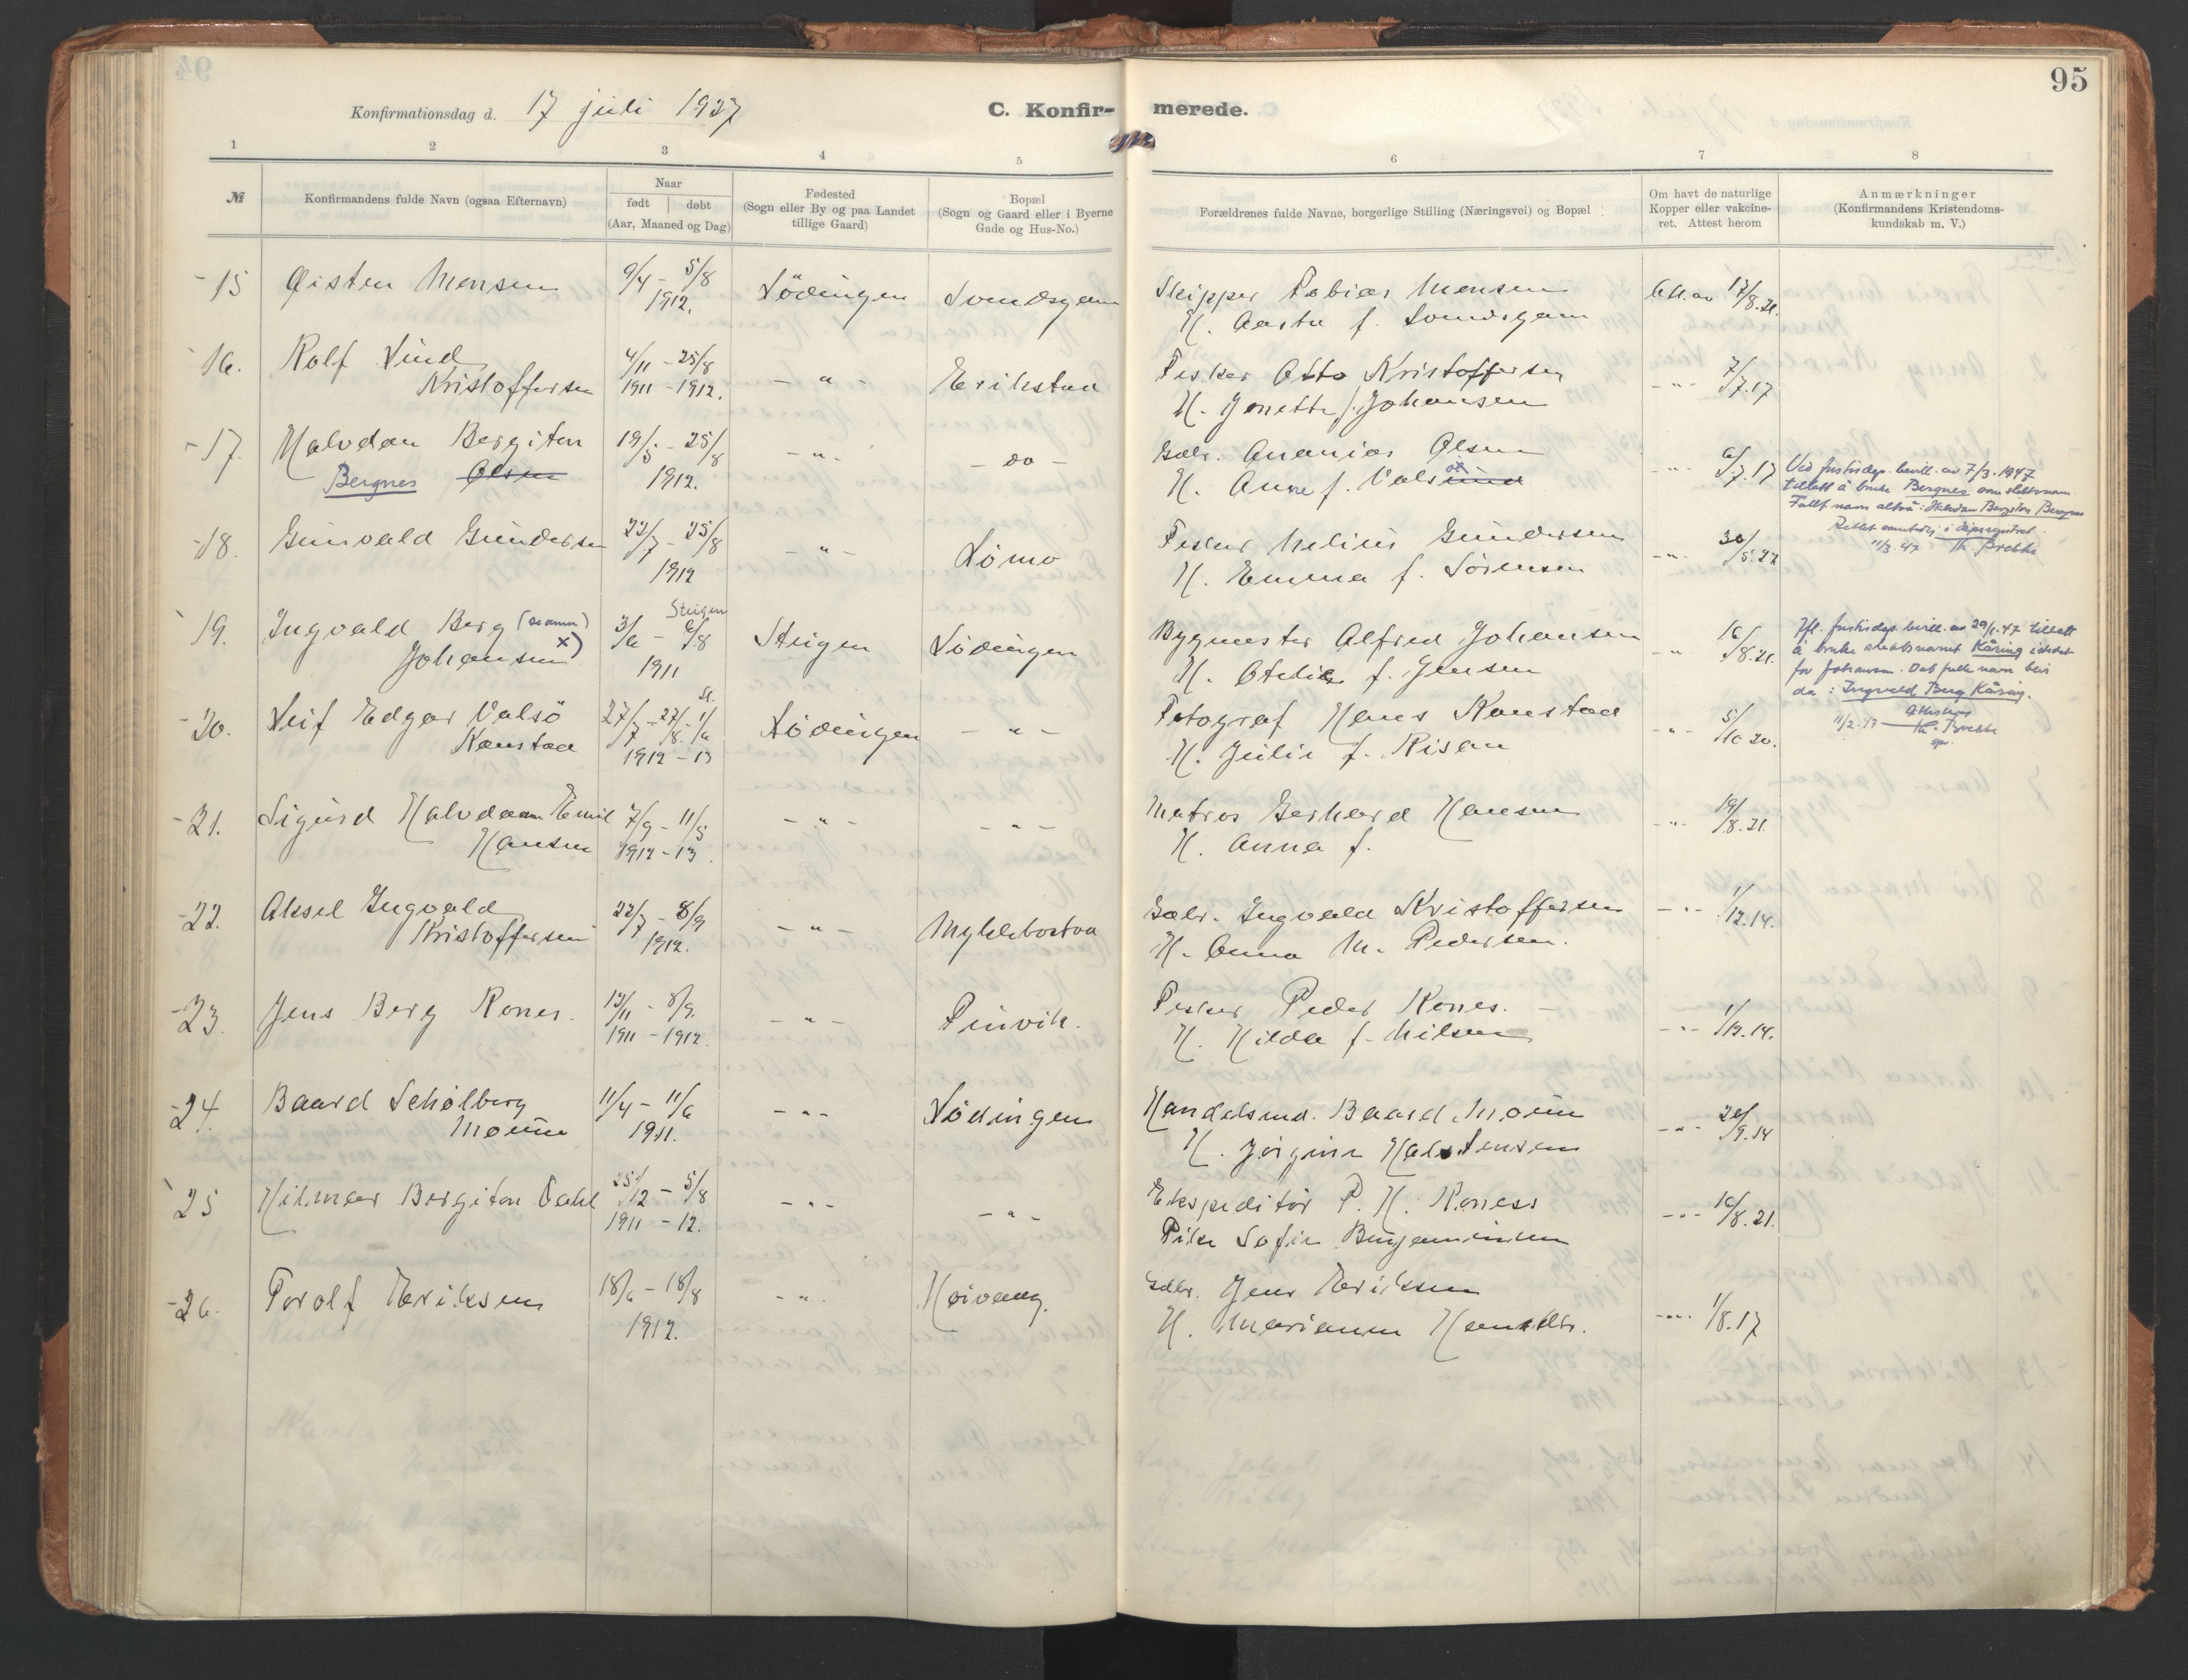 95
Konfirmationsdag d. 17 juli 1927
C. Konfir- merede.
1 2 3 4 5 6 7 8
№
Konfirmandens fulde Navn (ogsaa Efternavn)
Naar
født | døbt
(Aar, Maaned og Dag)
Fødested
(Sogn eller By og paa Landet
tillige Gaard)
Bopæl
(Sogn og Gaard eller i Byerne
Gade og Hus-No.)
Forældrenes fulde Navne, borgerlige Stilling (Næringsvei) og Bopæl
Om havt de naturlige
Kopper eller vakcine-
ret. Attest herom
Anmærkninger
(Konfirmandens Kristendoms-
kundskab m. V.)
15 Øisten Monsen 9/4 - 5/8 Lødingen
1912. Skipper Tobias Monsen 17/8.21.
H. Aasta f.
16. Rolf Lind 4/11 - 25/8 - " - Erikstad Fisker Otto Kristoffersen 7/7.17
Kristoffersen 1911 - 1912. H. Jonette f. Johansen
17. Halvdan Bergiton 19/5 - 25/8 - " - - do - Gdbr. Ananias Olsen 6/7.17
Bergnes Olsen 1912. H. Anna f.
Ved justisdep. bevill. av 7/3.1947
tillatt å bruke Bergnes som slektsnavn.
Fullt navn altså: Halvdan Bergiton Bergnes
Rettet samtidig i dåpsregistret.
11/3.47 Th. Brekke
18. Gunvald Gundersen 22/7 - 25/8 - " - Lømo Fisker Melius Gundersen 30/5.27
1912 H. Emma f. Sørensen
19. Ingvald Berg Steigen
Johansen x) 3/6 - 6/8 Steigen Lødingen Bygmester Alfred Johansen 16/8.21.
1911 H. Otelie f. Jensen
Ifl. justisdep. bevill. av 29/1.47 tillatt
å bruke slektsnavnet Kåring istedet
for Johansen. Det fulle navn blir
da: Ingvald Berg Kåring.
Attesteres
11/2.47 Th. Brekke
spr.
20. Leif Edgar Valsö 27/7 - 27/8 - 1/6 Lødingen - " - Fotograf Hans Kanstad 5/10 20.
Kanstad 1912 - 13 H. Julie f. Risan
21. Sigurd Halvdan Emil 7/9 - 11/5 - " - - " - Matros Gerhard Hansen 19/8.21.
Hansen 1912 - 13. H. Anna f.
22. Aksel Ingvald 22/7 - 8/9 - " - Myklebostad Gdbr. Ingvald Kristoffersen 1/12.14.
Kristoffersen 1912. H. Anna M. Pedersen.
23. Jens Berg Rones. 13/11 - 8/9. - " - Finvik. Fisker Peder Rones. - 1/12.14.
1911 - 1912. H. Hilda f. Nilsen
24. Baard Schølberg 11/4 - 11/6 - " - Lødingen Handelsmd. Baard Moum 28/9.14
Moum 1911. H. Jørgine Halstensen
25 Hilmar Bergiton Dahl 25/12 - 5/8 - " - - " - Ekspeditør P. H. Roness 16/8.21.
1911 - 12. Pike Sofie Benjaminsen
26. Torolf Eriksen 18/6 - 18/8 - " - Høivang. Gdbr. Jens Eriksen 1/8.17
1912. H. Marianne Hansdtr.